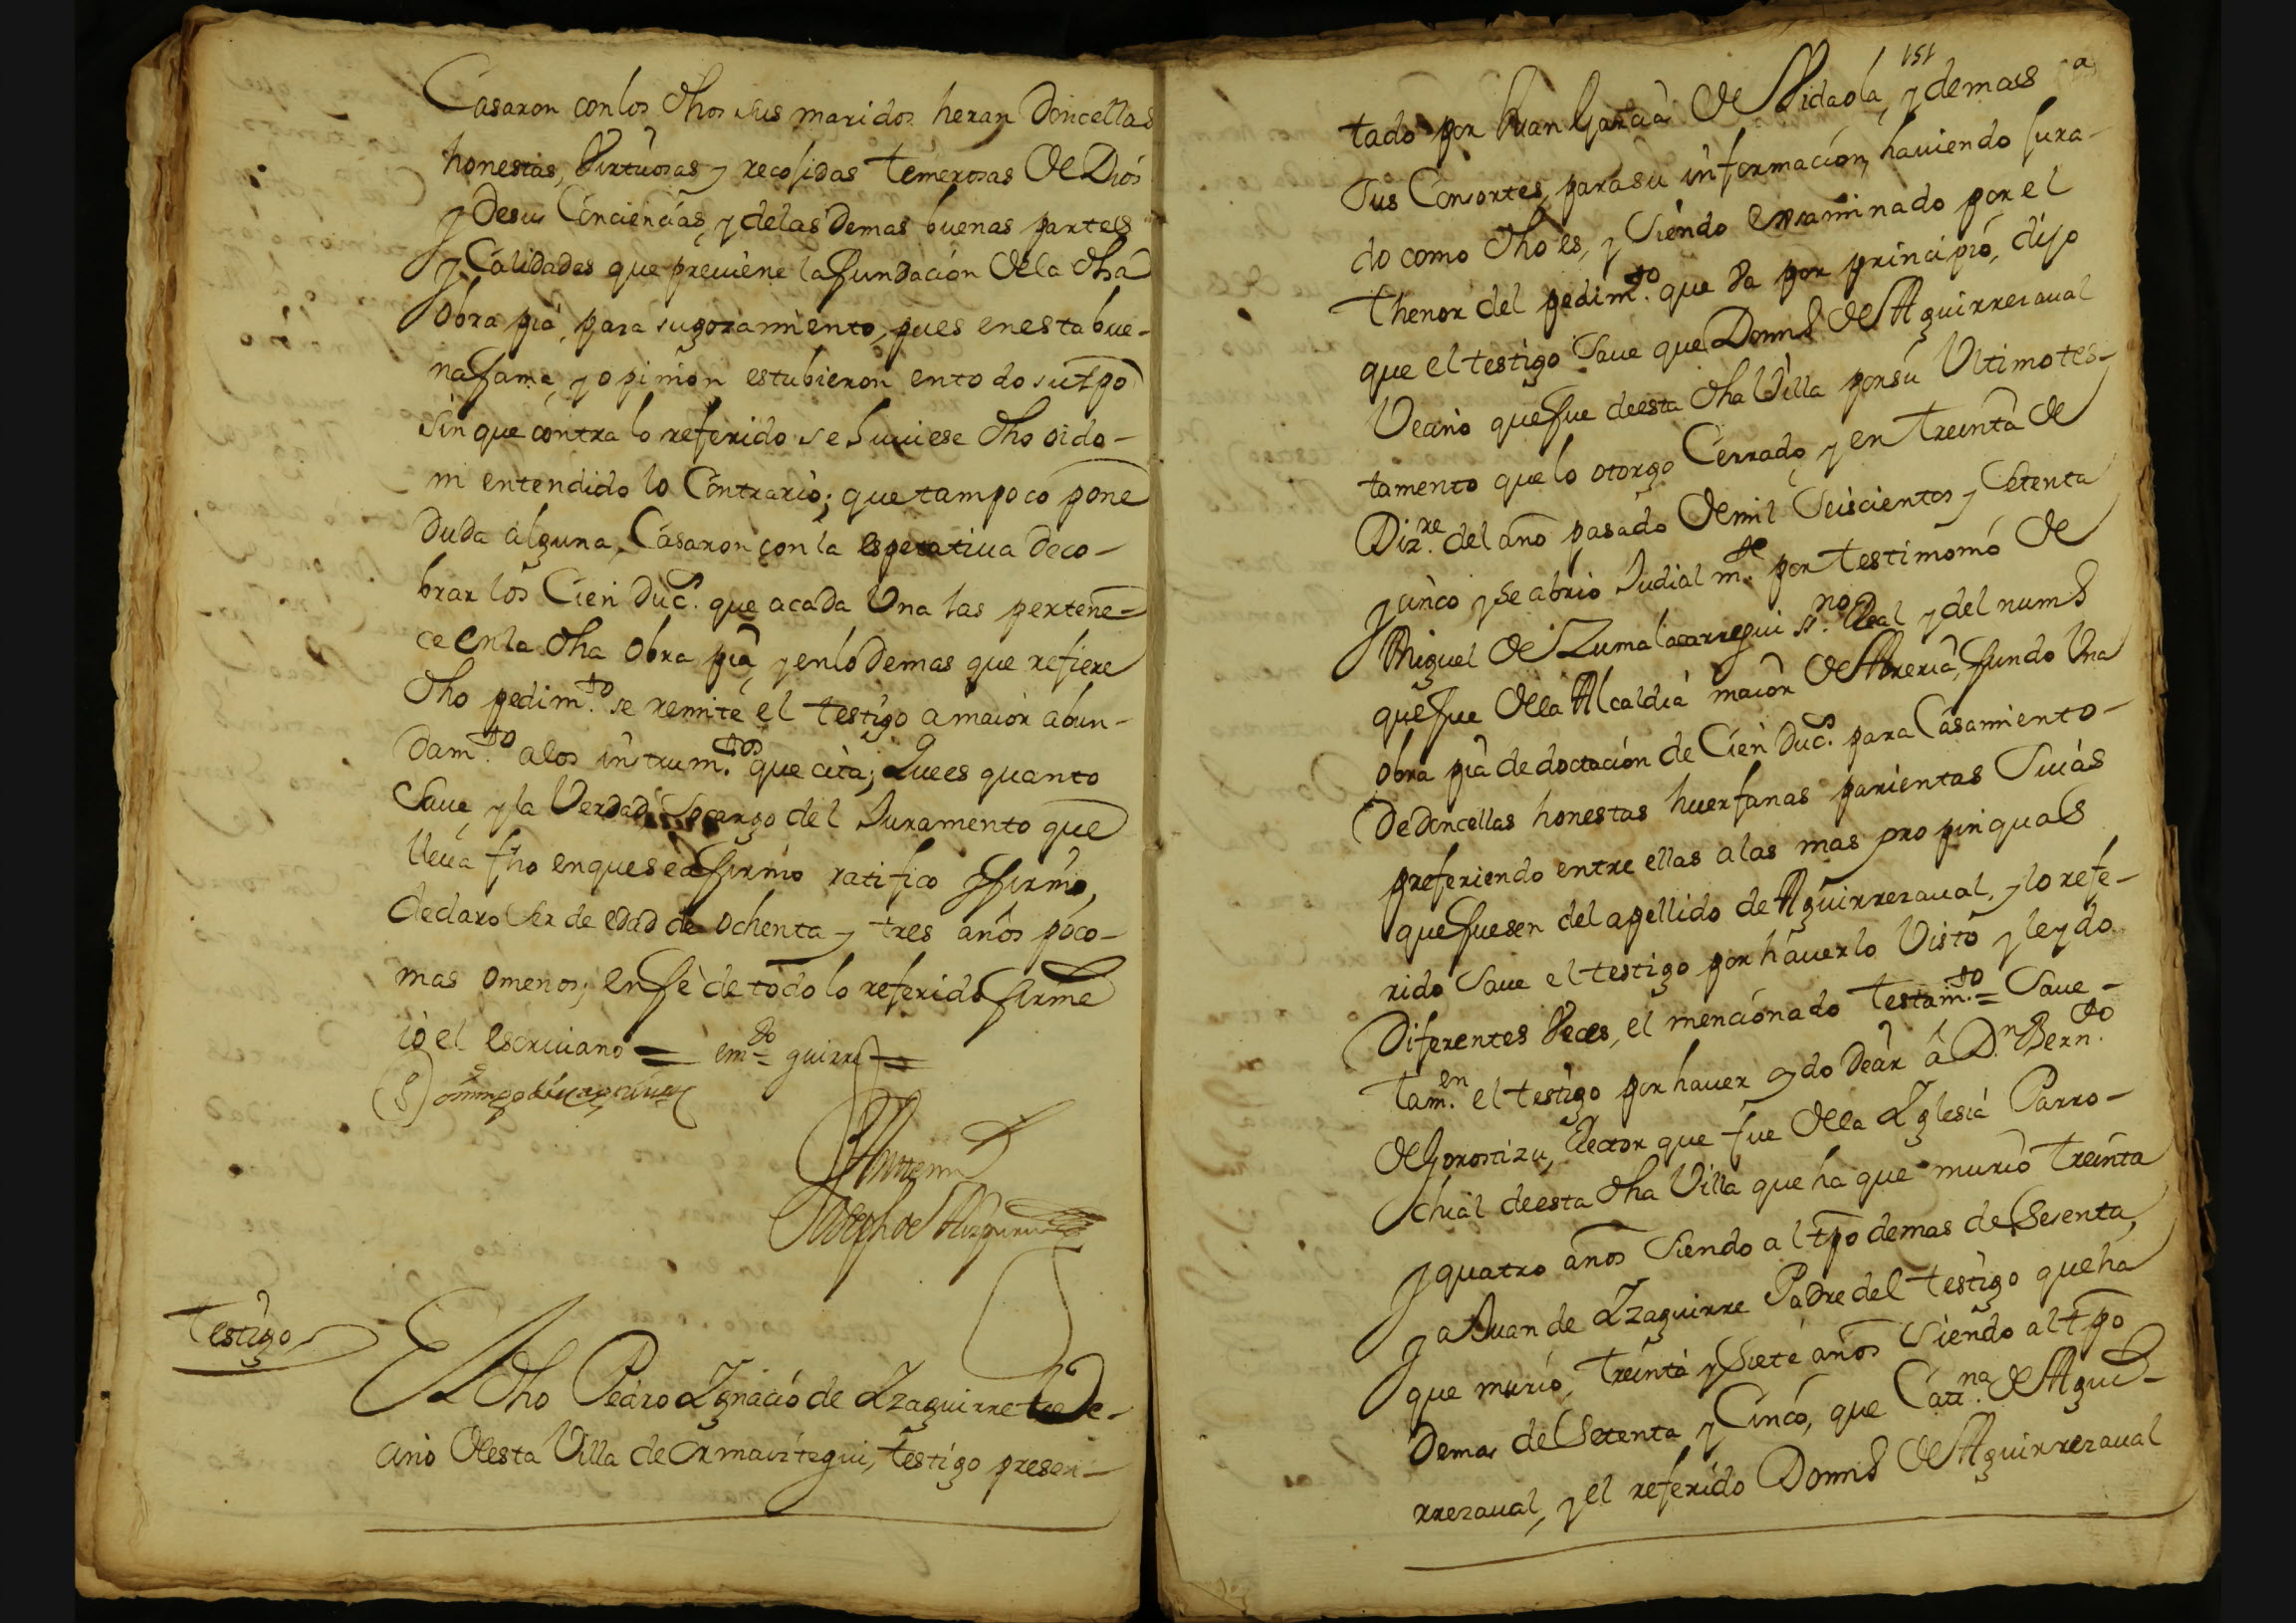 Casaron con los dhos sus maridos heran Doncellas
honestas, Virtuosas y recojidas temerosas de Dios
y de sus Conciencias, y de las demas buenas partes
y Calidades que previene la fundacion de la dha
Obra pia, para su gozamiento, pues en esta bue-
na fama, y opinion estubieron en todo su tpo
sin que contra lo referido se huviese dho oido-
ni entendido lo Contrario; que tampoco pone
Duda alguna, Casaron con la esperativa de co-
brar los Cien Duc.s que a cada Una las pertene-
ce en la dha Obra pia, y en lo demas que refiere
dho pedim.to se remite el testigo a maior abun-
dam.to a los instrum.tos que cita; Que es quanto
Save, y la Verdad, so cargo del Juramento que
lleva fho en que se afirmo ratifico y firmo,
declaro ser de edad de ochenta y tres años poco-
mas o menos; en fe de todo lo referido firme
io el escrivano = em.do guirre =
Testigo
El dho Pedro Ygnacio de Yzaguirre Ve-
cino de esta Villa de Ormaiztegui, testigo presen-
151
tado por Juan Garcia de Vidaola, y demas
sus Consortes, para su informacion, haviendo jura-
do como dho es, y siendo examinado por el
thenor del pedim.to que va por principio, dijo
que el testigo save que Domi.o de Aguirrezaval
Vecino que fue de esta dha Villa por su Ultimo tes-
tamento que lo otorgo Cerrado, y en treinta de
Diz.re del año pasado de mil seiscientos y setenta
y cinco y se abrio Judialm.te por testimonio de
Miguel de Zumalacarregui ss.no Real y del num.o
que fue de la Alcaldia maior de Areria, fundo Una
obra pia de doctacion de Cien Duc.s para Casamiento-
de doncellas honestas huerfanas parientas suias
preferiendo entre ellas a las mas propinquas
que fuesen del apellido de Aguirrezaval, y lo refe-
rido save el testigo por haverlo Visto y leydo
diferentes Veces, el mencionado testam.to = Save-
tam.en el testigo por haver oydo decir a D.n Bern.do
de Gorostizu, Rector que fue de la Yglesia Parro-
chial de esta dha Villa que ha que murio treinta
y quatro años siendo al tpo de mas de sesenta,
y a Juan de Yzaguirre Padre del testigo que ha
que murio, treinta y siete años siendo al tpo
de mas de setenta y Cinco, que Cat.na de Agui-
rrezaval, y el referido Domi.o de Aguirrezaval